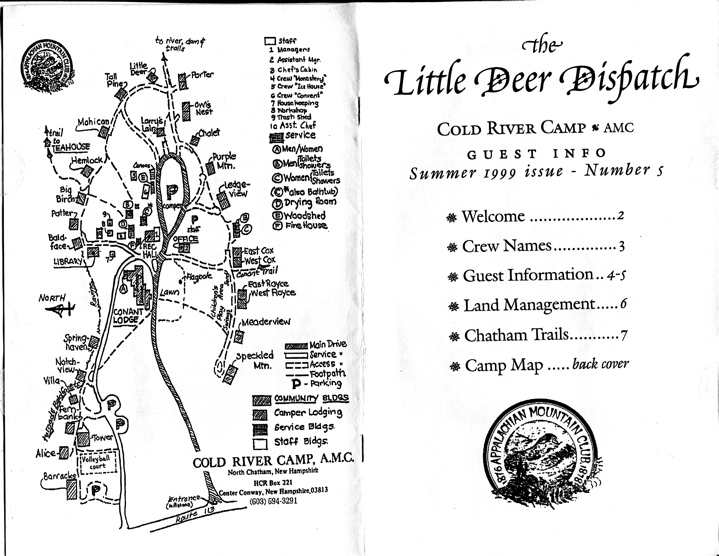 APPALACHIAN MOUNTAIN CLUB
to river, dam &
trails
Little
Deer
Porter
Tall
Pine
Owl's
Nest
Mohican
Larry's
Loin
Chalet
trail
to
TEAHOUSE
Hemlock
Purple
Mtn.
P
camper
Big
Birch
Ledge-
view
Potter
P
staff
Bald-
face
REC
HALL
OFFICE
LIBRARY
East Cox
West Cox
Conant Trail
NORTH
Flagpole
Lawn
East Royce
West Royce
CONANT
LODGE
Children's
Play Area
Meaderview
Spring-
haven
Speckled
Mtn.
Notch-
view
Villa
P
Fern
bank
P
Tower
Alice
Volleyball
court
Barracks
P
Entrance
(millstone)
Route 113
Staff
1 Managers
2 Assistant Mgr.
3 Chef's Cabin
4 Crew "Monastery"
5 Crew "Ice House"
6 Crew "Convent"
7 Housekeeping
8 Workshop
9 Trash Shed
10 Asst. Chef
Service
A Men/Women
B Men Toilets
Showers
C Women Toilets
Showers
(C also Bathtub)
D Drying Room
E Woodshed
F Fire House
Main Drive
Service "
Access "
Footpath
P - Parking
COMMUNITY BLDGS
Camper Lodging
Service Bldgs.
Staff Bldgs.
COLD RIVER CAMP, A.M.C.
North Chatham, New Hampshire
HCR Box 221
Center Conway, New Hampshire, 03813
(603) 694-3291
the
Little Deer Dispatch
COLD RIVER CAMP AMC
GUEST INFO
Summer 1999 issue - Number 5
Welcome ..................2
Crew Names.............3
Guest Information..4-5
Land Management.....6
Chatham Trails...........7
Camp Map .....back cover
APPALACHIAN MOUNTAIN CLUB 1876 1876